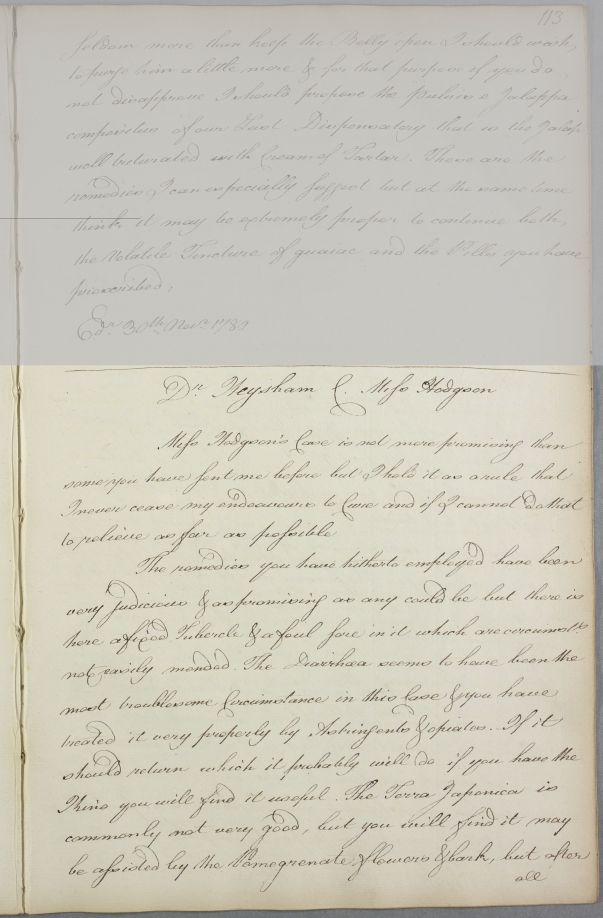 113
seldom more than keep the Belly open I should wish,
to purge him a little more & for that purpose if you do
not disapprove I should propose the Pulvis e Jalappa
compositus of our Last Dispensatory that is the Jalap
well triturated with Cream of Tartar. These are the
remedies I can especially suggest but at the same time
think it may be extremely proper to continue both,
the Volatile Tincture of guaiac and the Pills you have
prescribed,
Edr. 30th. Novr. 1789
Dr. Heysham C. Miss Hodgson
Miss Hodgson's Case is not more promising than
some you have sent me before but I hold it as a rule that
I never cease my endeavours to Cure and if I cannot do that
to relieve as far as possible
The remedies you have hitherto employed have been
very Judicious & as promising as any could be but there is
here a fixed Tubercle & a foul sore in it which are circumsts.
not easily mended. The Diarrhœa seems to have been the
most troublesome Circumstance in this Case & you have
treated it very properly by Astringents & opiates. If it
should return which it probably will do if you have the
Kino you will find it useful. The Terra Japonica is
commonly not very good, but you will find it may
be assisted by the Pomegrenate flowers & bark, but after
all